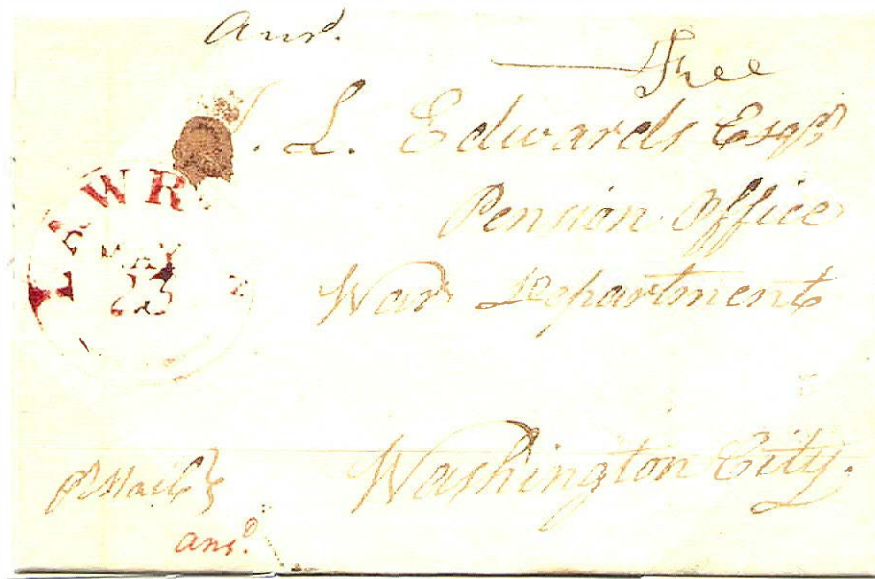 Ansd.
Free
. L. Edwards Esqr
Pension Office
War Department
Washington City.
pr Mail
ansd.
LAWR
MAY